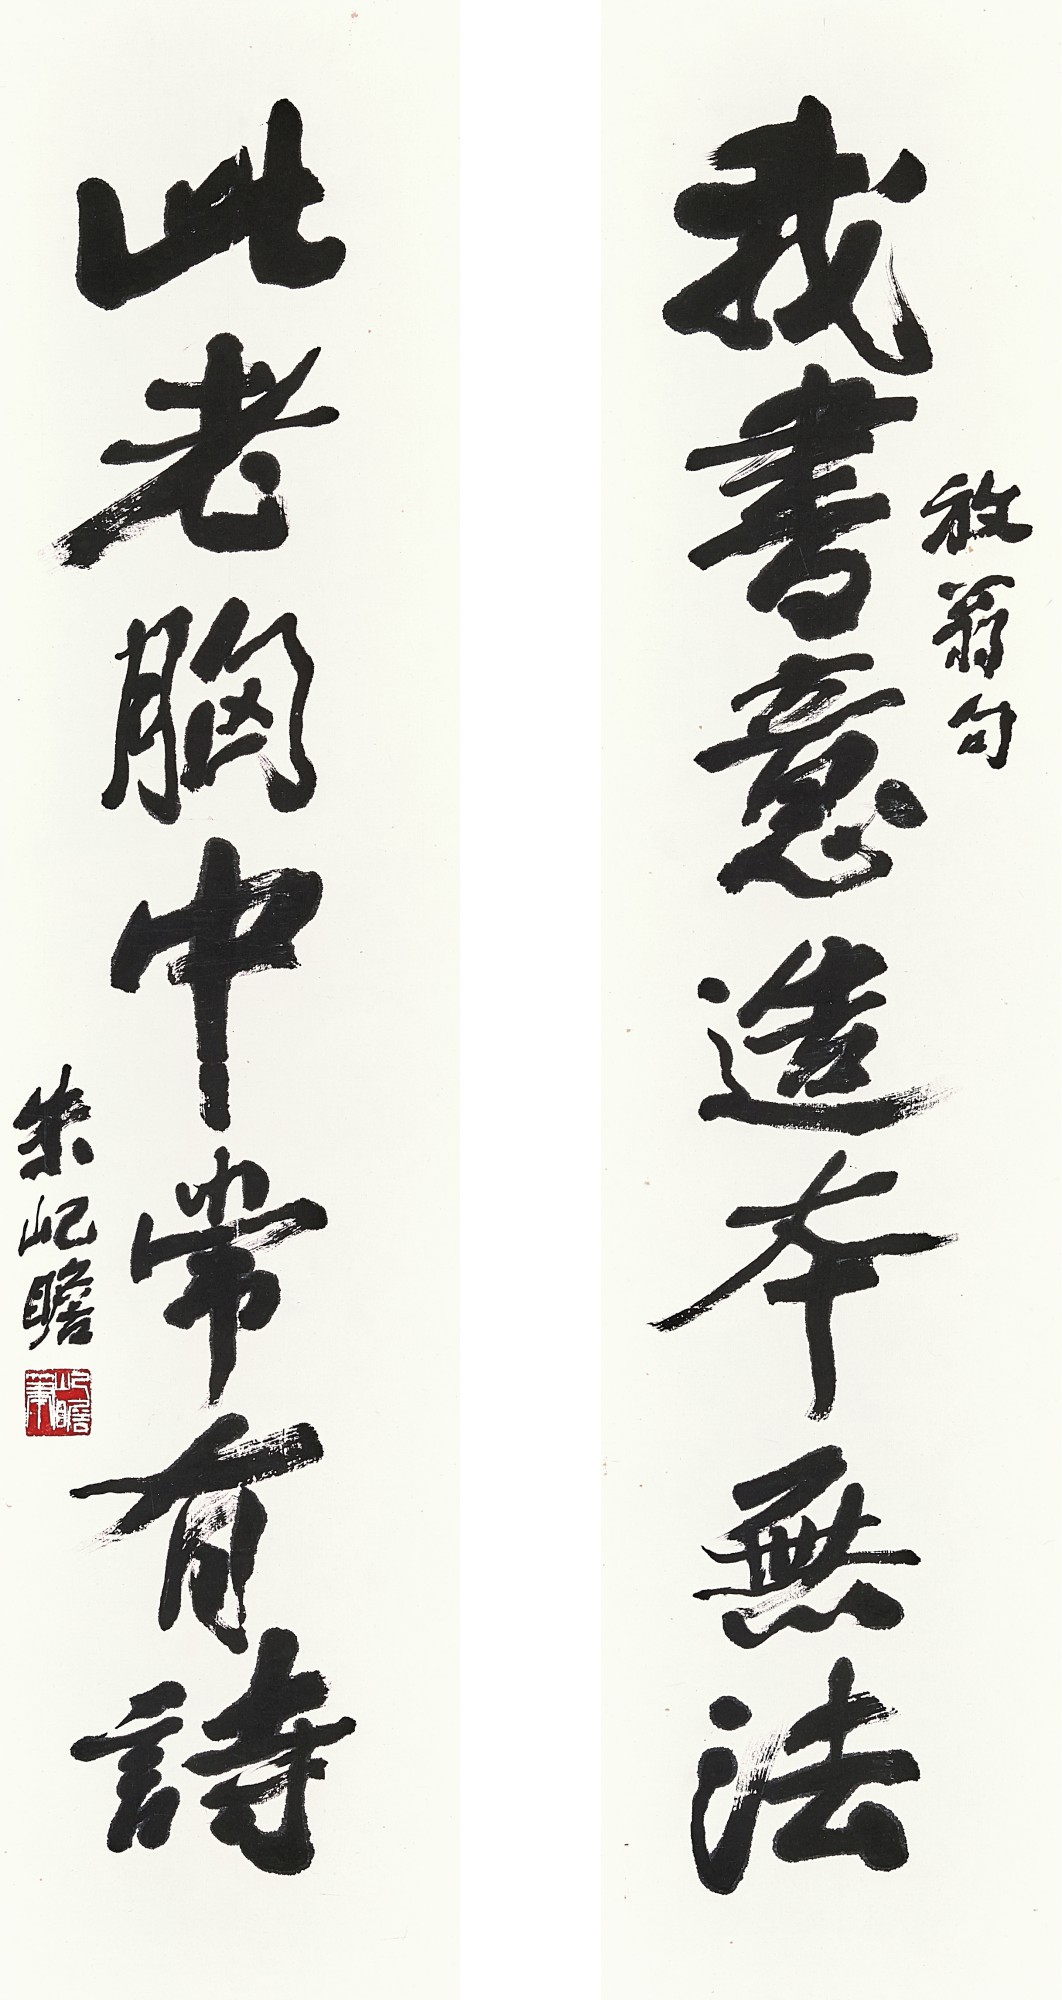 放翁句
我書意造本無法
此老胸中常有詩
朱屺瞻
屺瞻